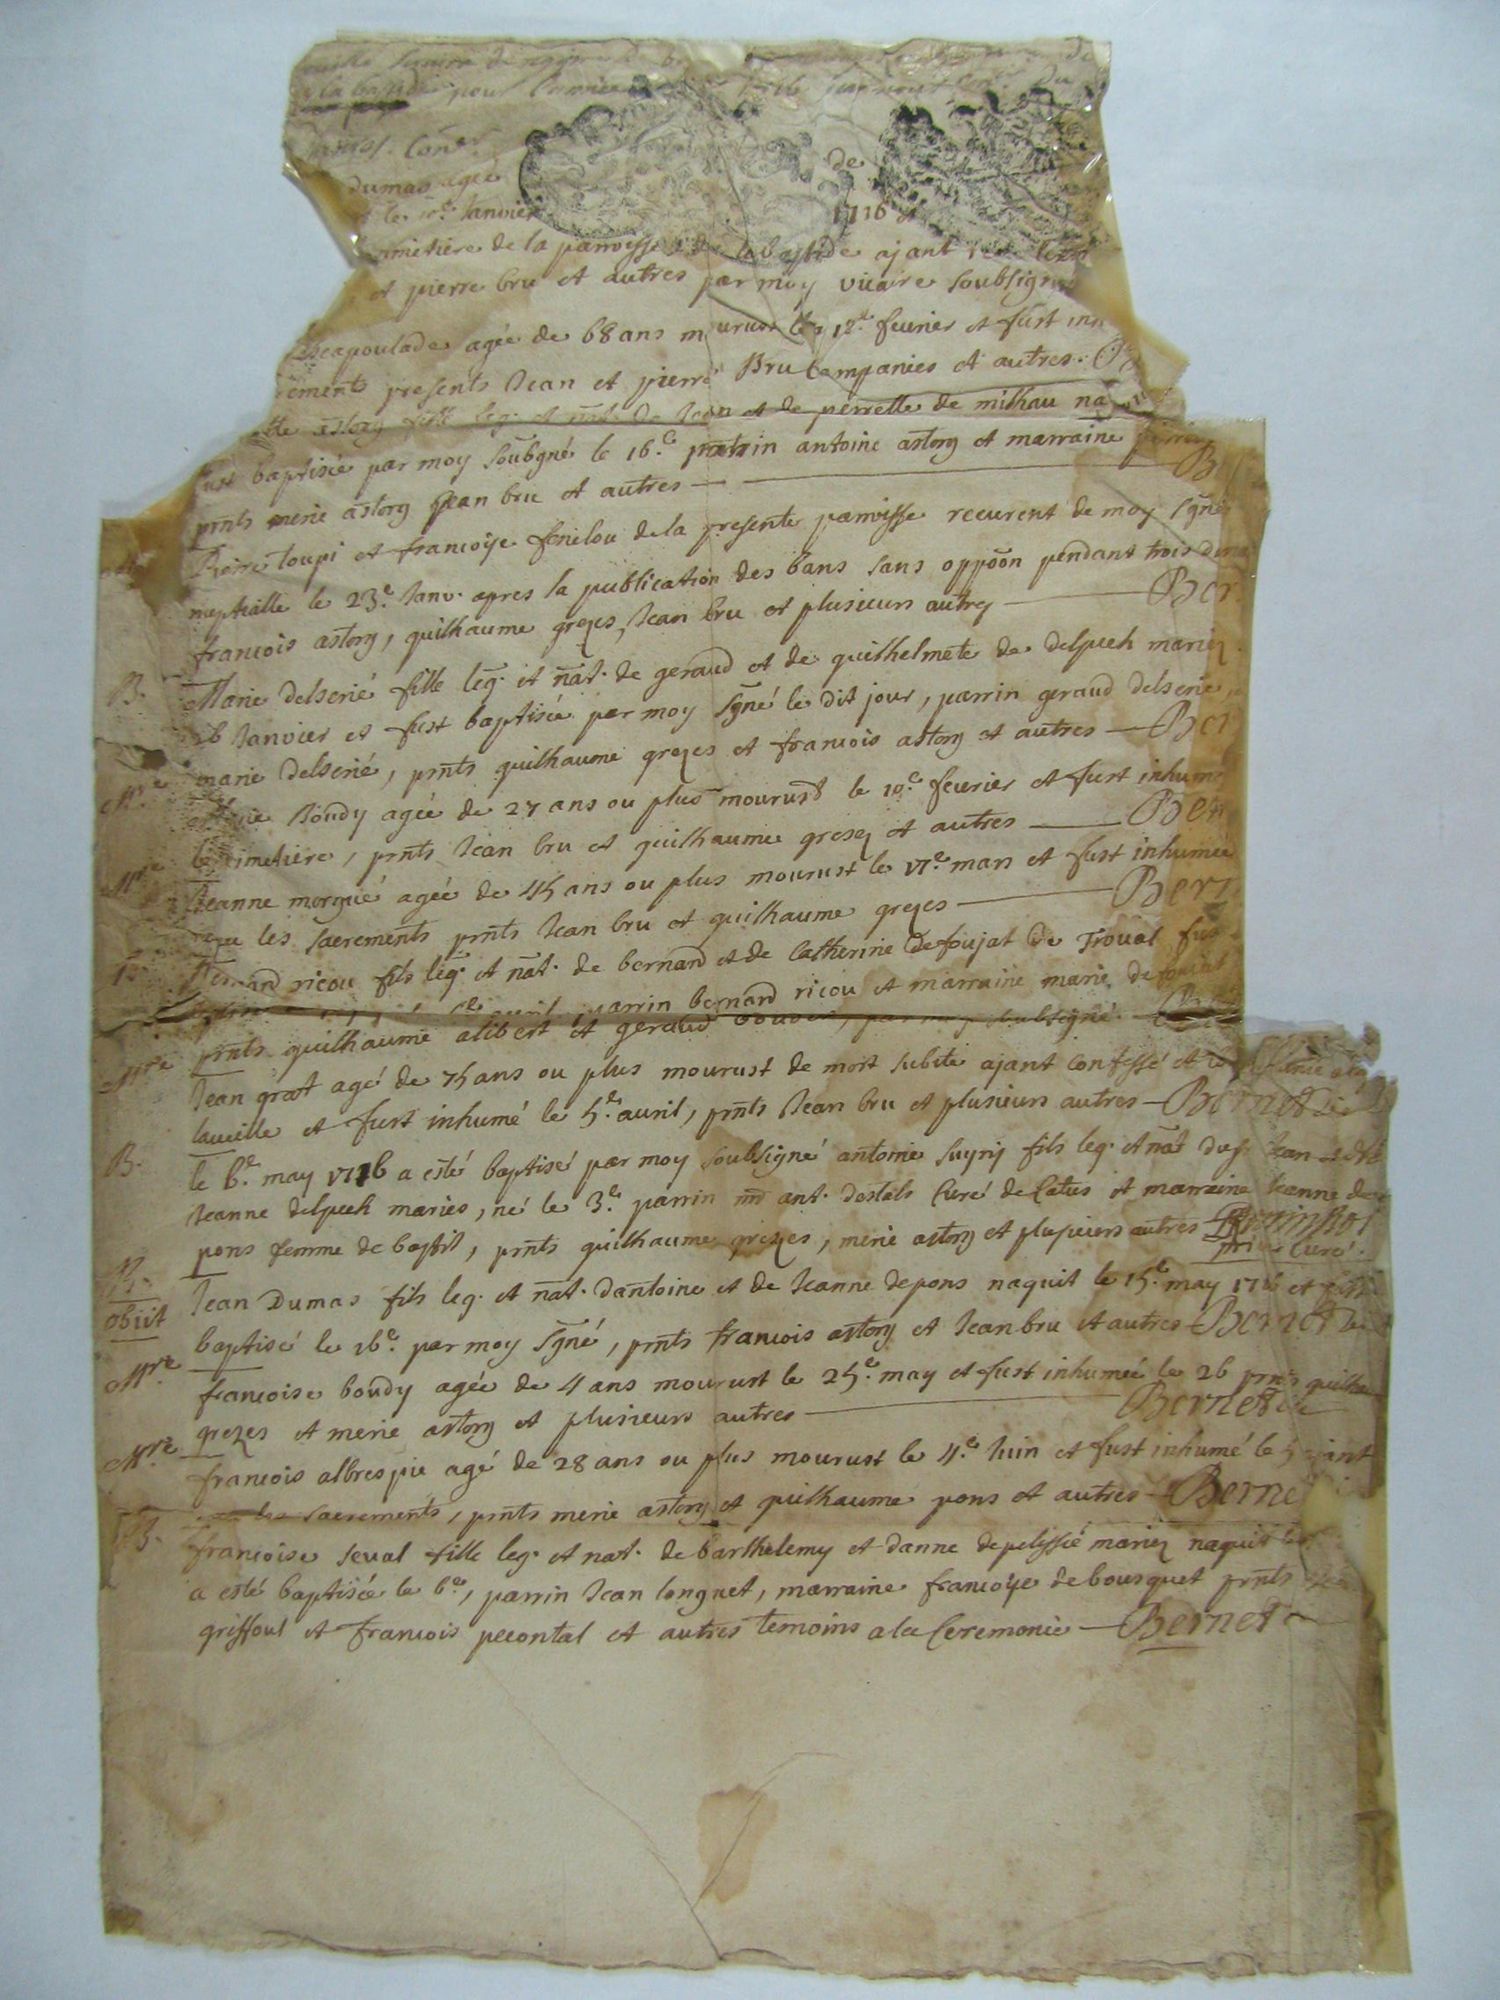 la bastide pour l'année
Con.er
dumas agée de
le Janvier 1716 et
cimetiere de la parroisse de labastide ajant
et pierre bru et autres par moy vicaire soubsigné
scapoulade agée de 68 ans mourust le 12.e feurier et fust in
rements presents Jean et pierre Bru Companies et autres.
astorg fille leg. et nat. de Jean et de perrette de milhau na
fust baptisée par moy soubgné le 16.e parrin antoine astorg et marraine
pnts merie astorg Jean bru et autres
Pierre loupi et francoise fenelou de la presente parroisse receurent de moy sgné
nuptialle le 23.e Janv. apres la publication des bans sans oppoon pendant trois dima
francois astorg, guilhaume grezes, Jean bru et plusieurs autres Ber
B. Marie delserié fille leg. et nat. de geraud et de guilhelmete de delpech mariez
26 Janvier et fust baptisée par moy sgné le dit jour, parrin geraud delserie
marie delserié, pnts guilhaume grezes et francois astorg et autres Ber
M.re Boudy agée de 27 ans ou plus mourust le 10.e feurier et fust inhumé
le cimetiere, pnts Jean bru et guilhaume gresez et autres Ber
M.re Jeanne morguié agée de 45 ans ou plus mourust le 17.e mars et fust inhumée
reçu les sacrements pnts Jean bru et guilhaume grezes Ber
B. Bernard ricou fils leg. et nat. de bernard et de Catherine de foujat de Troual fust
auril parrin bernard ricou et marraine marie de foujat
pnts guilhaume alibert et geraud par moy soubsigné
M.re Jean grat agé de 75 ans ou plus mourust de mort subite ajant confessé et
laueille et fust inhumé le 5.e auril, pnts Jean bru et plusieurs autres Bernet
B. le 6.e may 1716 a esté baptisé par moy soubsigné antoine suyrij fils leg. et nat du Jean et de
Jeanne delpech mariés, né le 3.e parrin mr ant. destals Curé de Catus et marraine Jeanne de
pons femme de bastit, pnts guilhaume grezes, merie astorg et plusieurs autres
prieur Curé.
B. obiit Jean Dumas fils leg. et nat. dantoine et de Jeanne depons naquit le 15.e may 1716 et fust
baptisé le 16.e par moy sgné, pnts francois astorg et Jean bru et autres Bernet
M.re francoise boudy agée de 4 ans mourust le 25.e may et fust inhumée le 26 pnts guilhaume
grezes et merie astorg et plusieurs autres Bernet
M.re francois albrespie agé de 28 ans ou plus mourust le 4.e Juin et fust inhumé le 5 ajant
les sacrements, pnts merie astorg et guilhaume pons et autres Bernet
B. francoise seual fille leg. et nat. de barthelemy et danne de pelissié mariez naquit le
a esté baptisée le 6.e, parrin Jean longuet, marraine francoise de bousquet pnts
griffoul et francois pecontal et autres temoins a la Ceremonie Bernet